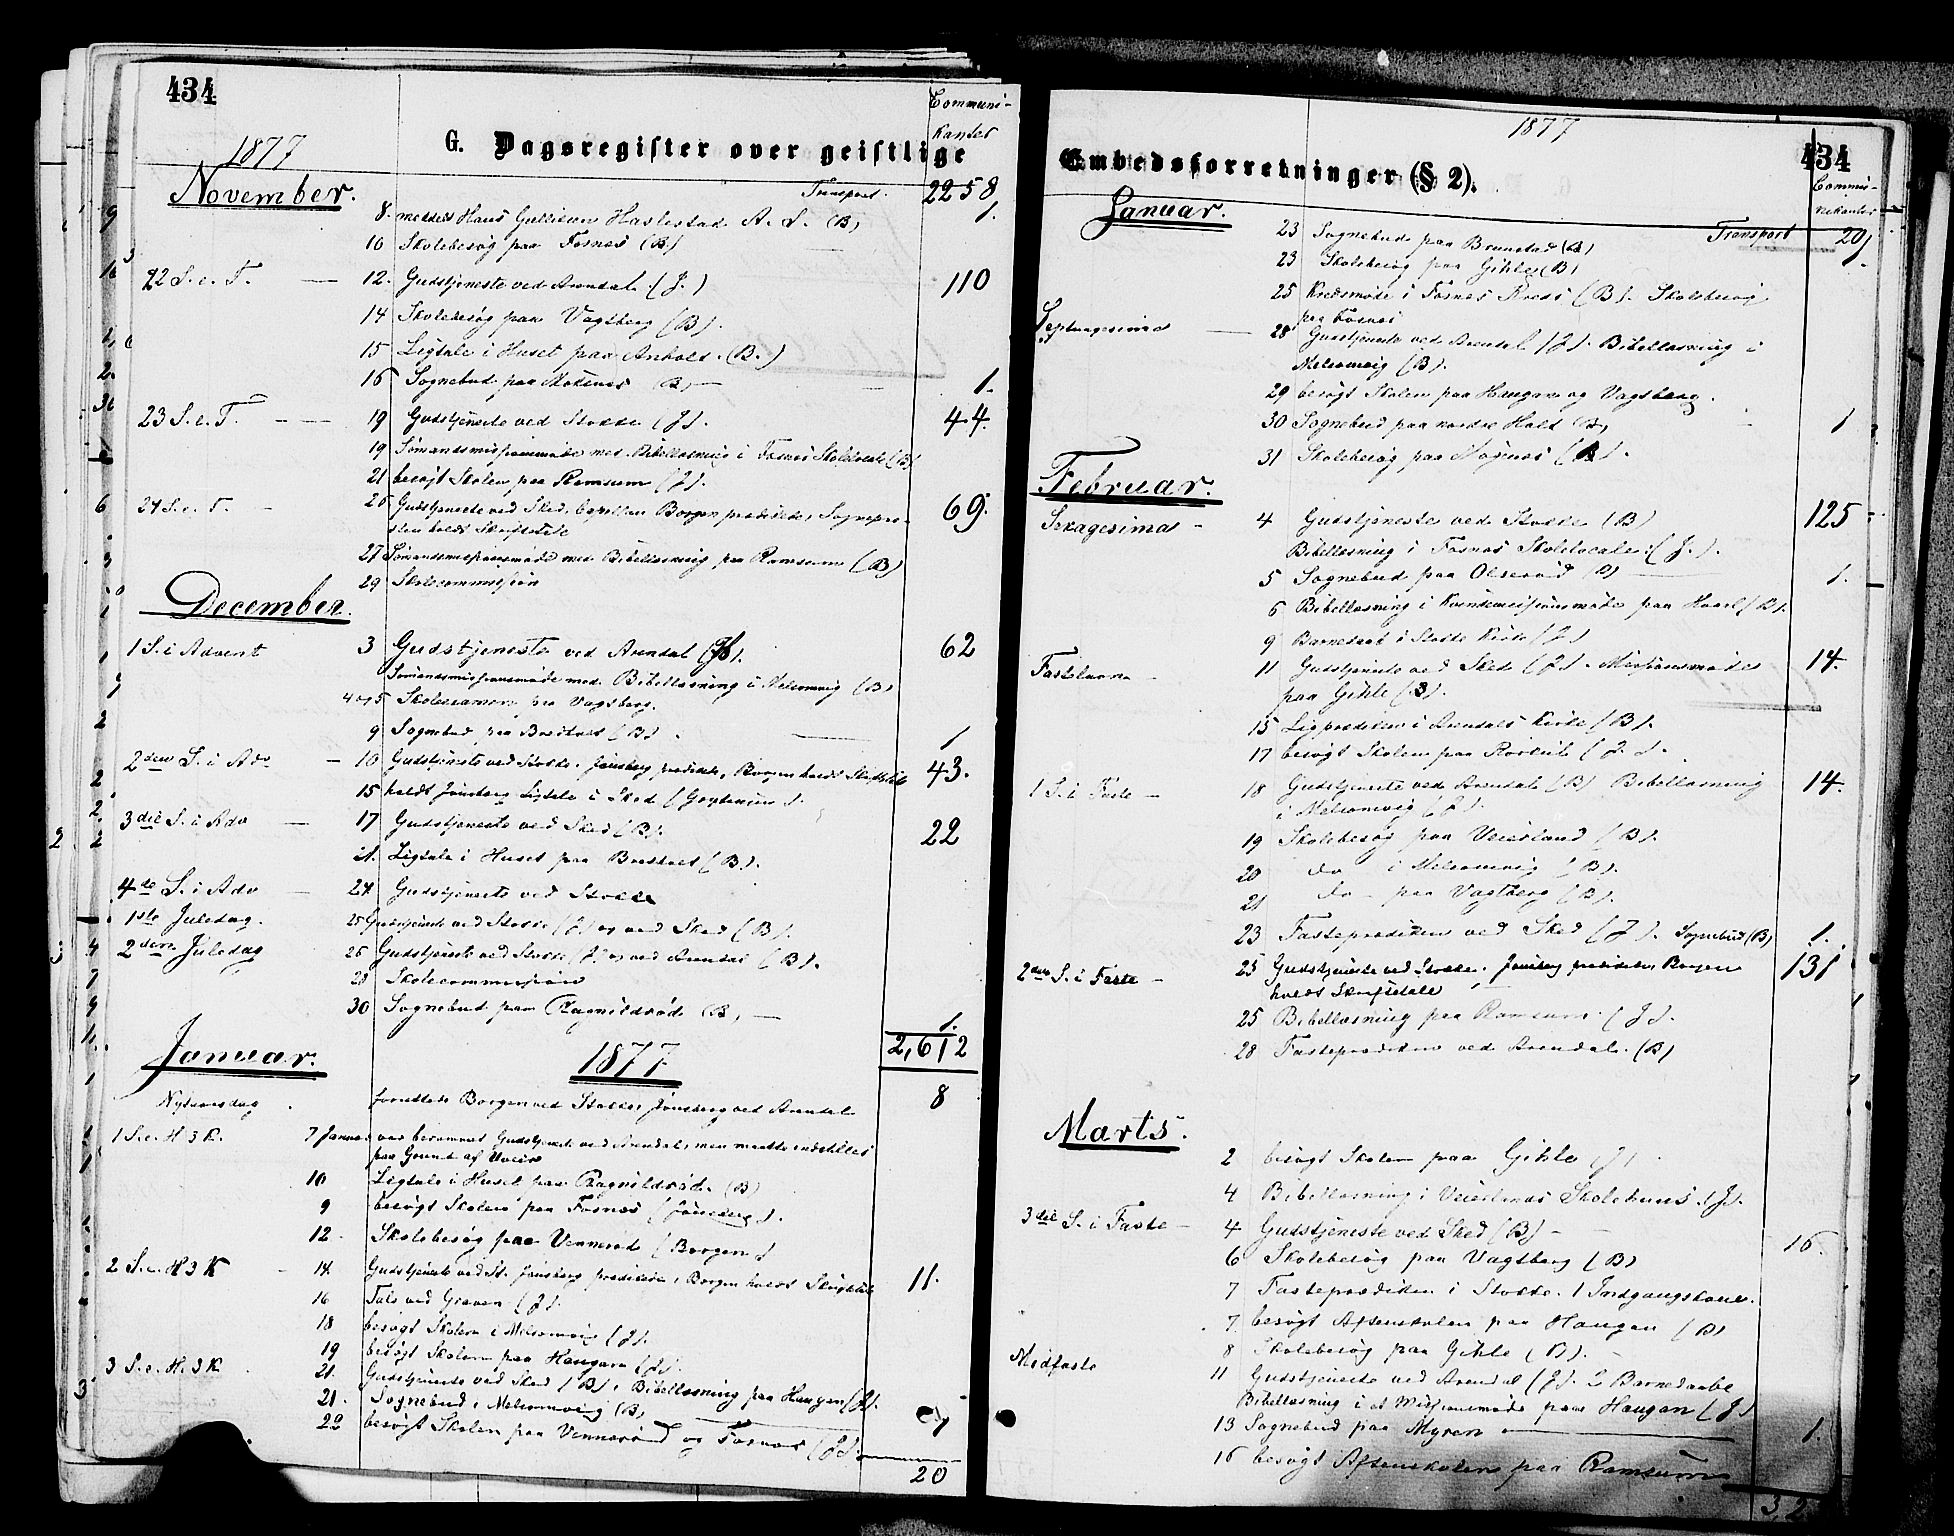 434
1877
G. Dagsregister over geistlige
Communi-
kanter
November.
Transport. 2258
8. meddelt Hans Gullisen Haslestad A. S. (B) 1.
10 Skolebesøg paa Fosnes (B)
22 S. e. T. — 12. Gudstjeneste ved Arendal (J.) 110
14 Skolebesøg paa Vagtberg (B).
15 Ligtale i Huset paa Anholt. (B.)
16 Sognebud paa (B) — 1.
23 S. e. T. — 19 Gudstjeneste ved Stokke (J). 44.
19 Sømandsmissionsmøde med Bibellæsning i Fosnes Skolelocale (B)
21 besøgt Skolen paa Ramsum (J).
24 S. e. T. - 26 Gudstjeneste ved Sked, Capellan Borgen prædikede, Sognepræ- 69.
sten holdt Skriftetale
27 Sømandsmissionsmøde med Bibellæsning paa Ramsum (B)
29 Skolecommission
December.
1 S. i Advent 3 Gudstjeneste ved Arendal 62
Sømandsmissionsmøde med Bibellæsning i Melsomvig (B)
4 og 5 Skoleexamen paa Vagtberg.
9 Sognebud paa Brestvet (B). 1
2den S. i Adv — 10 Gudstjeneste ved Stokke. Jonsberg prædikede, Borgen holdt Skriftetale 43.
15 holdt Jonsberg Ligtale i Sked
3die S. i Adv — 17 Gudstjeneste ved Sked (B). 22
21. Ligtale i Huset paa Brestvet (B).
4de S. i Adv — 24 Gudstjeneste ved Stokke
1ste Juledag. 25 Gudstjeneste ved Stokke (J) og ved Sked (B).
2den Juledag 26 Gudstjeneste ved Stokke (J) og ved Arendal (B).
28 Skolecommission
30 Sognebud paa Ragnildrød (B) — 1.
2,612
Januar. 1877
Nytaarsdag. forrettede Borgen ved Stokke, Jonsberg ved Arendal 8
1 S. e. H 3 K. 7 Januar var berammet Gudstjeneste ved Arendal, men maatte indstilles
paa Grund af Uveir
10 Ligtale i Huset paa Ragnildrød. (B)
9 besøgt Skolen paa Fosnes (Jonsberg).
12. Skolebesøg paa Vennerød (Borgen)
2 S. e. H 3 K - 14. Gudstjeneste ved St. Jonsberg prædikede, Borgen holdt Skriftetale 11.
16 Tale ved Graven (J).
18 besøgt Skolen i Melsomvig (J).
19 besøgt Skolen paa Haugan (J).
3 S. e. H. 3 K. 21. Gudstjeneste ved Sked (B), Bibellæsning paa Haugan (J).
21. Sognebud i Melsomvig (B) 1
22 besøgt Skolen paa Vennerød og Fosnes (J).
20
1877
Embedsforretninger (§ 2).
434
Commu-
nikanter
Januar.
Transport 20
23 Sognebud paa Brunstad (B) 1.
23 Skolebesøg paa Gihle (B)
25 Kredsmøde i Fosnes Kreds (B). Skolebesøg
paa Fosnes
Septuagesima — 28 Gudstjeneste ved Arendal (J). Bibellæsning i
Melsomvig (B).
29 besøgt Skolen paa Haugan og Vagtberg.
30 Sognebud paa nordre Holt (B) 1
31 Skolebesøg paa (B).
Februar.
Sexagesima - 4 Gudstjeneste ved Stokke (B) 125
Bibellæsning i Fosnes Skolelocale. (J.).
5 Sognebud paa Olserød (B) — 1.
6 Bibellæsning i Kvindemissionsmøde paa (B).
9 Barnedaab i Stokke Kirke (J)
Fastelavn - 11 Gudstjeneste ved Sked (J). Missionsmøde 14.
paa Gihle (B).
15 Ligprædiken i Arendals Kirke (B).
17 besøgt Skolen paa (J).
1 S. i Faste - 18 Gudstjeneste ved Arendal (B) Bibellæsning 14.
i Melsomvig (J).
19 Skolebesøg paa Veierland (B).
20 do i Melsomvig (B).
21 do - paa Vagtberg (B).
23 Fasteprædiken ved Sked (J). Sognebud (B) 1.
2den S. i Faste - 25 Gudstjeneste ved Stokke. Jonsberg prædikede, Borgen 131
holdt Skriftetale
25 Bibellæsning paa Ramsum. (J).
28 Fasteprædiken ved Arendal. (B)
Marts.
2 besøgt Skolen paa Gihle (J)
4 Bibellæsning i Veierlands Skolehuus. (J).
3die S. i Faste - 4 Gudstjeneste ved Sked (B) - 16.
6 Skolebesøg paa Vagtberg (B)
7 Fasteprædiken i Stokke. 1 Indgangskone.
7 besøgt Aftenskolen paa Haugan (B)
8 Skolebesøg paa Gihle (B).
Midfaste 11 Gudstjeneste ved Arendal (J). 2 Barnedaab
Bibellæsning i et Missionsmøde paa Haugan (J)
13 Sognebud paa Myren — 1.
16 besøgt Aftenskolen paa Ramsum